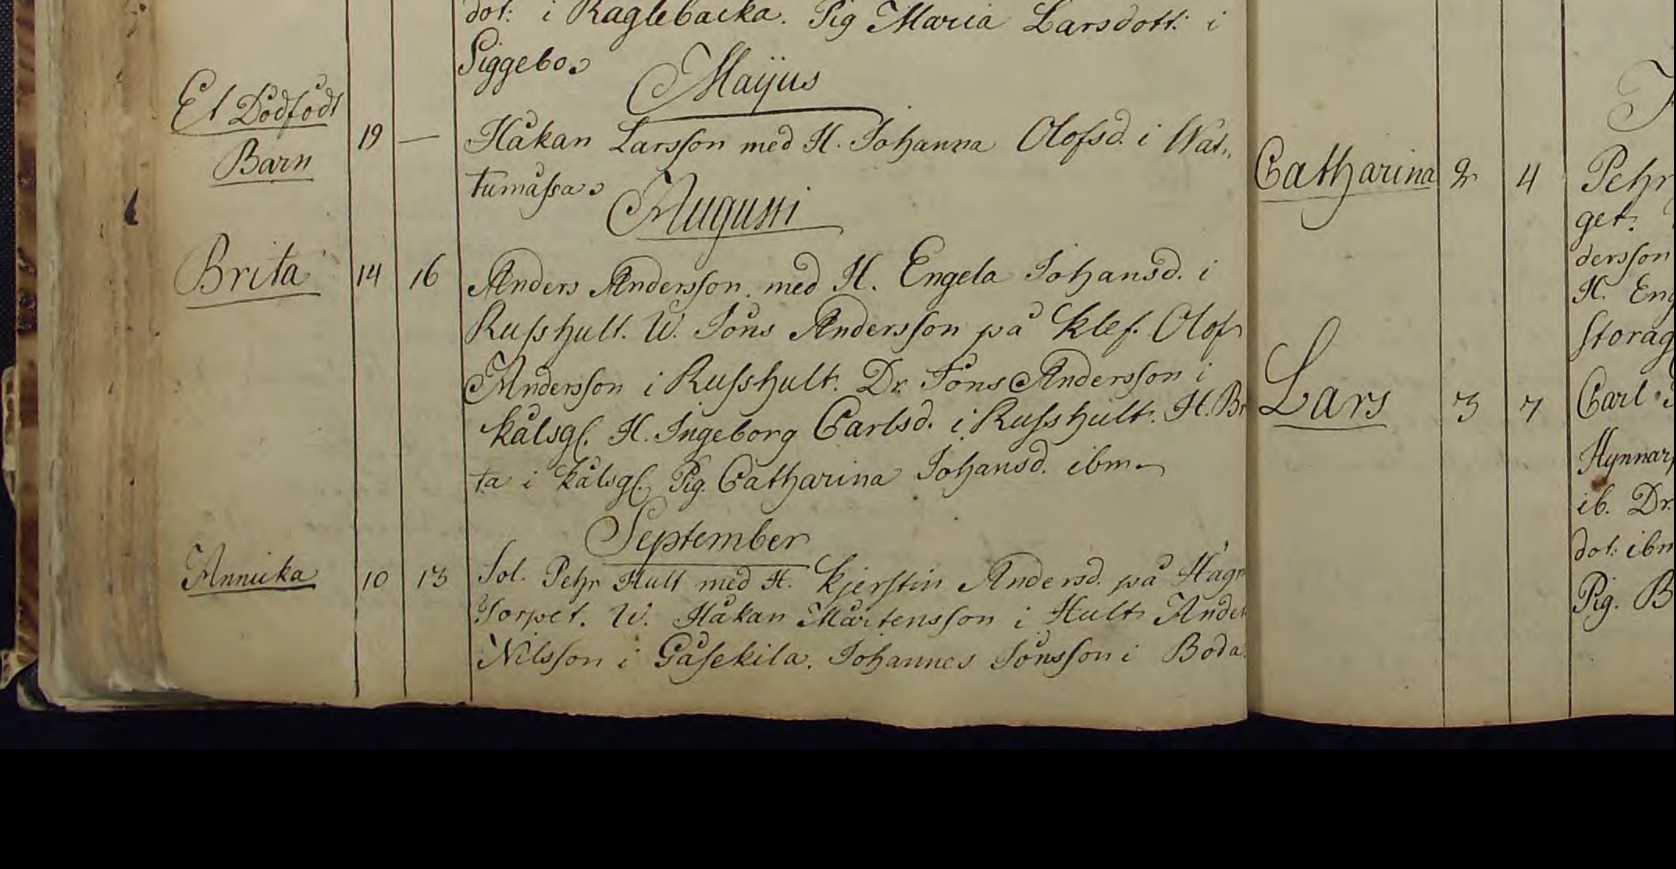 dot: i Raglebacka. Pig Maria Larsdott: i
Siggebo.
Maijus
Et Dödfödt
Barn
19 — Håkan Larsson med H. Johanna Olofsd. i Wat„
tumåssa.
Augusti
Brita 14 16 Anders Andersson med H. Engela Johansd. i
Russhult. W. Jöns Andersson på Klef. Olof
Andersson i Russhult. Dr. Jöns Andersson i
Kålsgl. H. Ingeborg Carlsd. i Russhult. H. Bri
ta i Kålsgl. Pig. Catharina Johansd. ibm
September
Annicka 10 13 Sol. Pehr Hult med H. Kjerstin Andersd. på
Torpet. W. Håkan Mårtensson i Hult Ander
Nilsson i Gåsekila. Johannes Jönsson i Boda.
Catharina 2 4 Pehr
get.
dersson
H. Eng
Storåg
Lars 3 7 Carl
Hynnar
ib. Dr.
dot: ibm
Pig. B